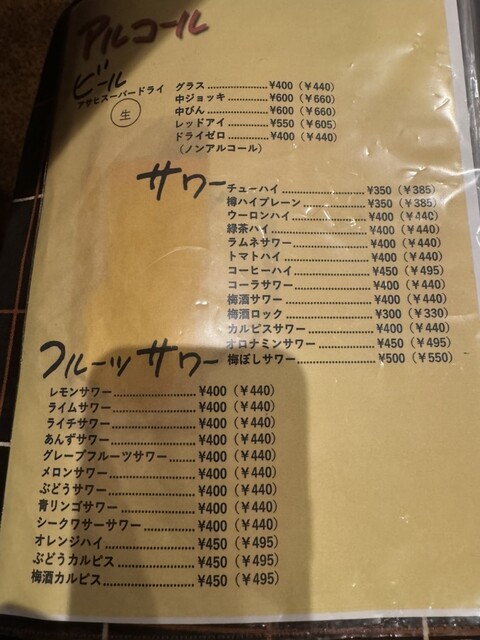 アルコール
ビール
アサヒスーパードライ
生
グラス……………………¥400（¥440）
中ジョッキ………………¥600（¥660）
中びん……………………¥600（¥660）
レッドアイ………………¥550（¥605）
ドライゼロ………………¥400（¥440）
（ノンアルコール）
サワー
チューハイ……………………¥350（¥385）
樽ハイプレーン………………¥350（¥385）
ウーロンハイ…………………¥400（¥440）
緑茶ハイ………………………¥400（¥440）
ラムネサワー…………………¥400（¥440）
トマトハイ……………………¥400（¥440）
コーヒーハイ…………………¥450（¥495）
コーラサワー…………………¥400（¥440）
梅酒サワー……………………¥400（¥440）
梅酒ロック……………………¥300（¥330）
カルピスサワー………………¥400（¥440）
オロナミンサワー……………¥450（¥495）
梅ぼしサワー…………………¥500（¥550）
フルーツサワー
レモンサワー…………………¥400（¥440）
ライムサワー…………………¥400（¥440）
ライチサワー…………………¥400（¥440）
あんずサワー…………………¥400（¥440）
グレープフルーツサワー……¥400（¥440）
メロンサワー…………………¥400（¥440）
ぶどうサワー…………………¥400（¥440）
青リンゴサワー………………¥400（¥440）
シークワサーサワー…………¥400（¥440）
オレンジハイ…………………¥450（¥495）
ぶどうカルピス………………¥450（¥495）
梅酒カルピス…………………¥450（¥495）